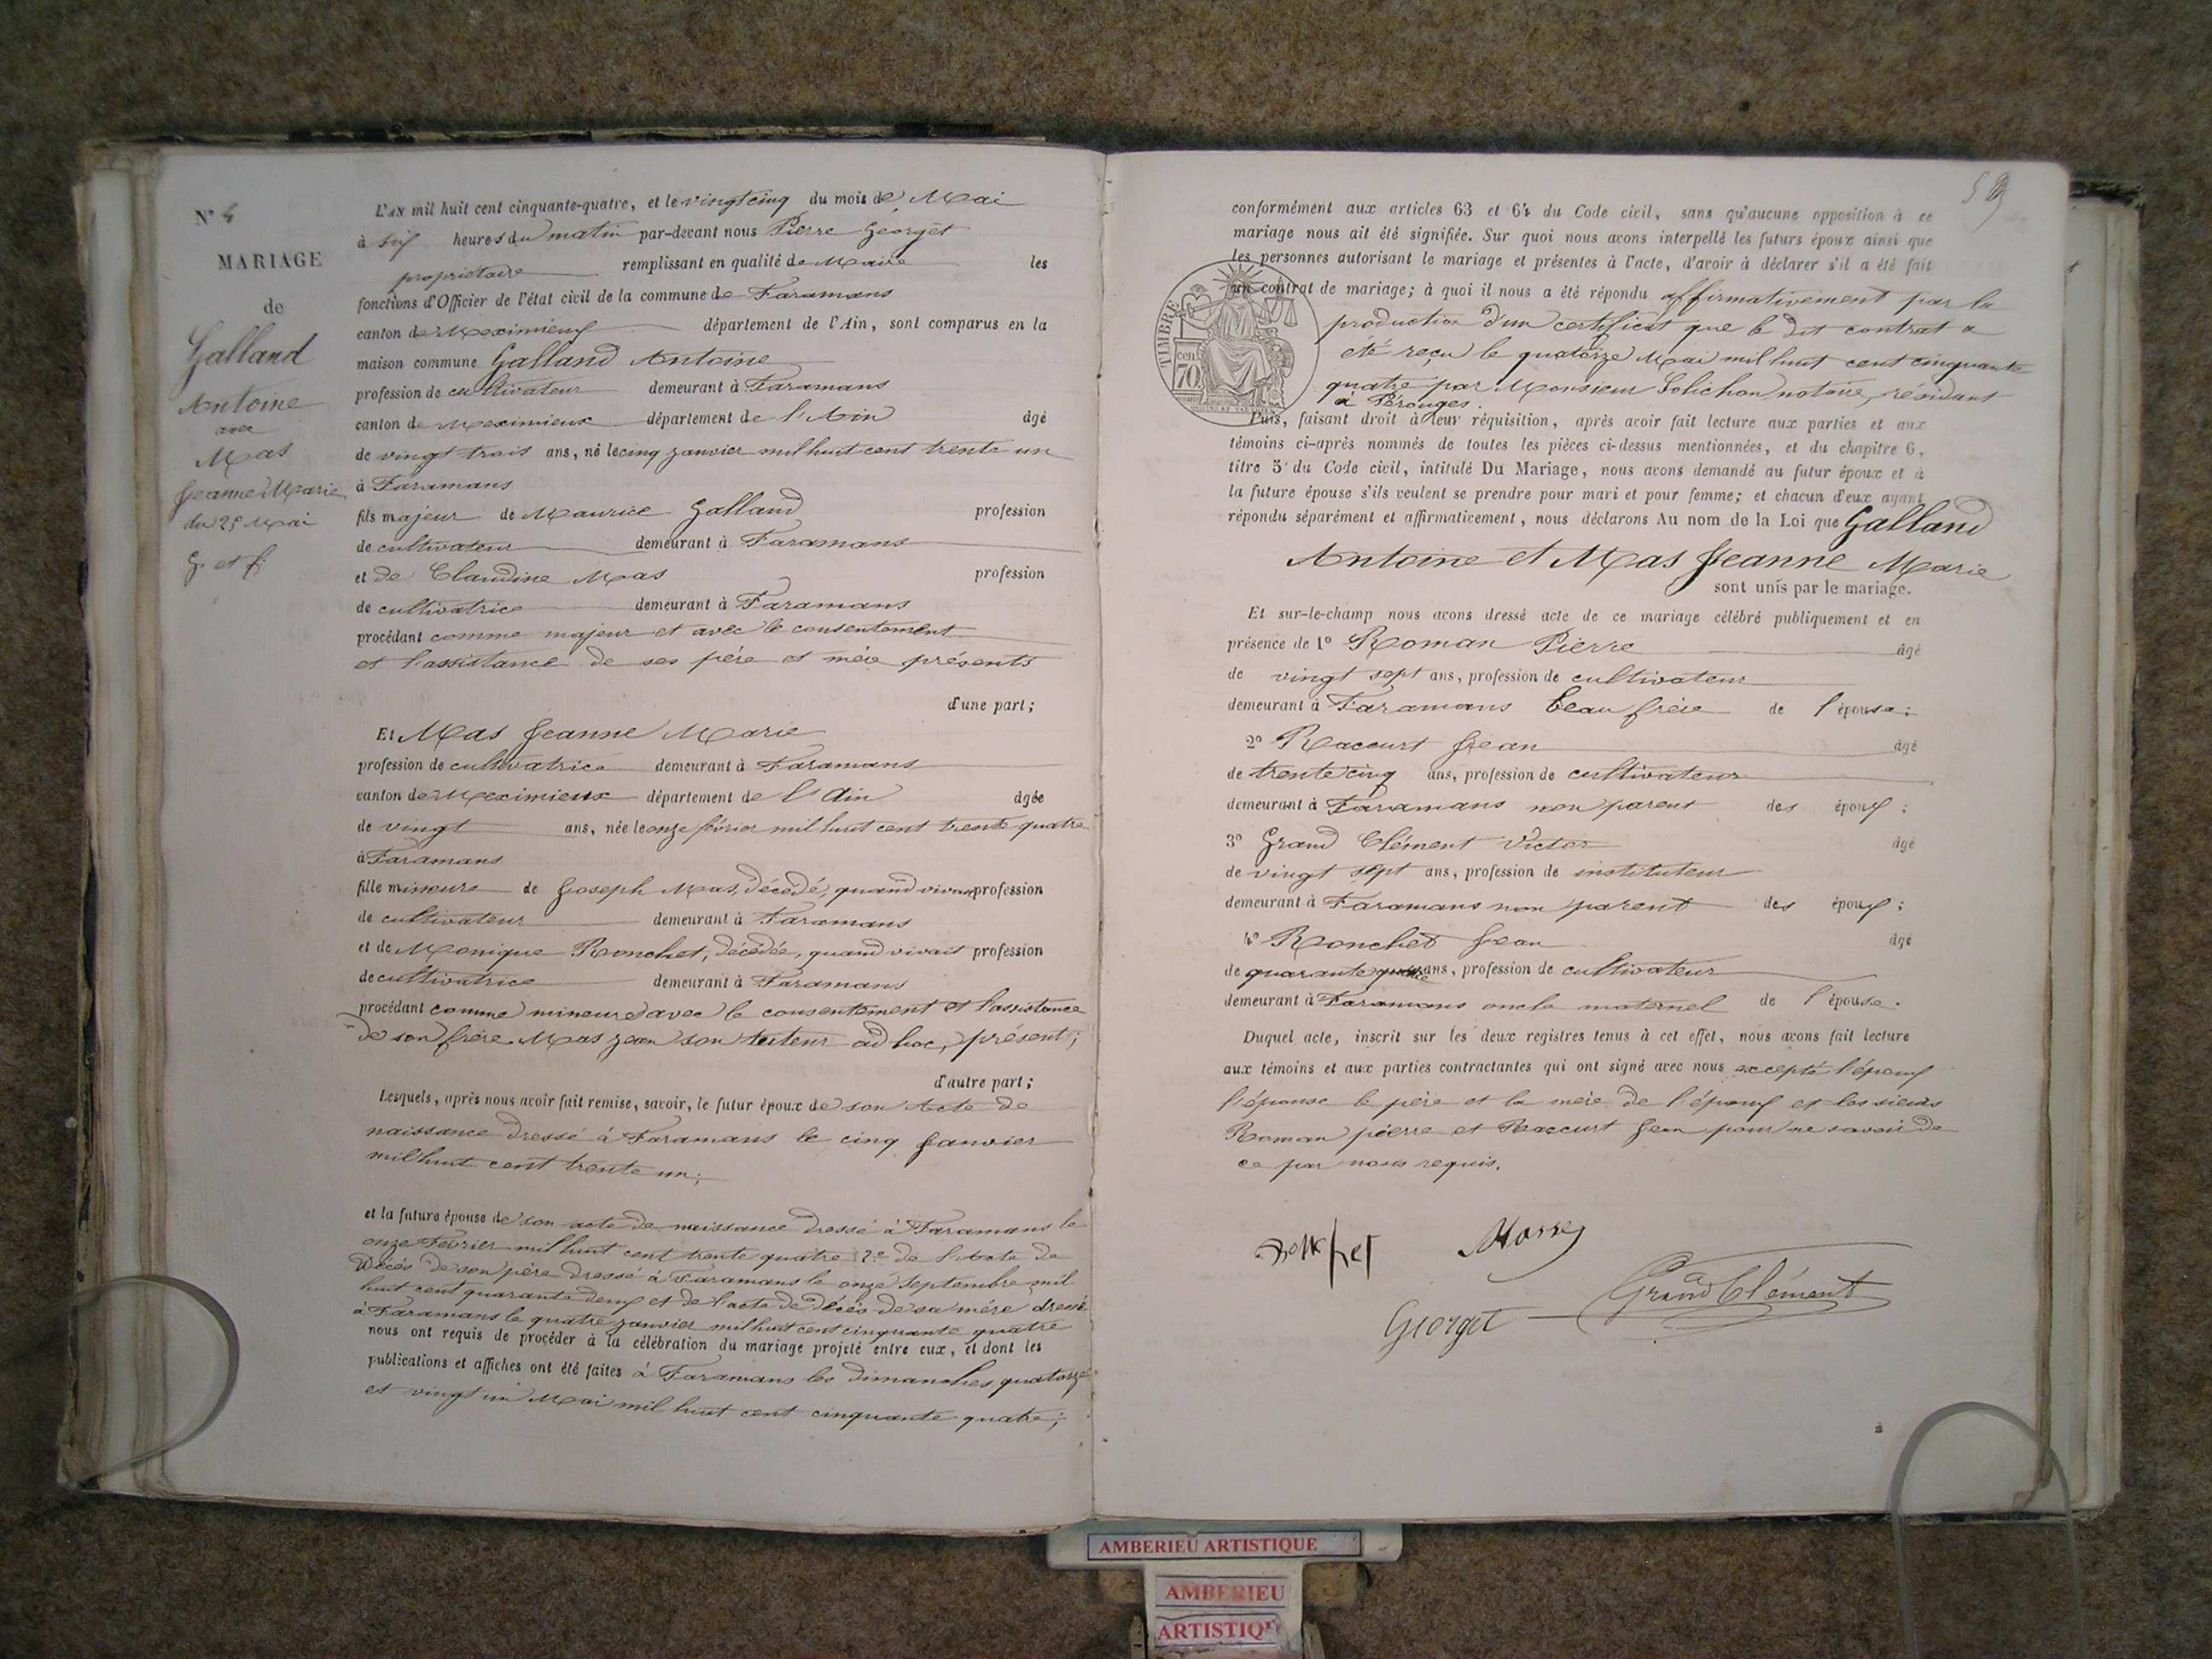 N° 4
MARIAGE
de
Galland
Antoine
avec
Mas
Jeanne Marie
du 25 Mai
G. et f.
L'AN mil huit cent cinquante-quatre, et le vingt cinq du mois de Mai
à six heures du matin par-devant nous Pierre Georget
propriétaire remplissant en qualité de Maire les
fonctions d'Officier de l'état civil de la commune de Faramans
canton de Meximieux département de l'Ain, sont comparus en la
maison commune Galland Antoine
profession de cultivateur demeurant à Faramans
canton de Meximieux département de l'Ain âgé
de vingt trois ans, né le cinq janvier mil huit cent trente un
à Faramans
fils majeur de Maurice Galland profession
de cultivateur demeurant à Faramans
et de Claudine Mas profession
de cultivatrice demeurant à Faramans
procédant comme majeur et avec le consentement
et l'assistance de ses père et mère présents
d'une part;
Et Mas Jeanne Marie
profession de cultivatrice demeurant à Faramans
canton de Meximieux département de l'Ain âgée
de vingt ans, née le onze février mil huit cent trente quatre
à Faramans
fille mineure de Joseph Mas, décédé, quand vivait profession
de cultivateur demeurant à Faramans
et de Monique Ronchet, décédée, quand vivait profession
de cultivatrice demeurant à Faramans
procédant comme mineure avec le consentement et l'assistance
de son frère Mas jean son tuteur ad hoc, présent;
d'autre part;
Lesquels, après nous avoir fait remise, savoir, le futur époux de son Acte de
naissance dressé à Faramans le cinq Janvier
mil huit cent trente un;
et la future épouse de son acte de naissance dressé à Faramans le
onze Février mil huit cent trente quatre 2° de l'Acte de
Décès de son père dressé à Faramans le onze Septembre mil
huit cent quarante deux et de l'acte de décès de sa mère dressé
à Faramans le quatre janvier mil huit cent cinquante quatre
nous ont requis de procéder à la célébration du mariage projeté entre eux, et dont les
publications et affiches ont été faites à Faramans les dimanches quatorze
et vingt un Mai mil huit cent cinquante quatre;
59
conformément aux articles 63 et 64 du Code civil, sans qu'aucune opposition à ce
mariage nous ait été signifiée. Sur quoi nous avons interpellé les futurs époux ainsi que
les personnes autorisant le mariage et présentes à l'acte, d'avoir à déclarer s'il a été fait
un contrat de mariage; à quoi il nous a été répondu affirmativement par la
production d'un certificat que le dit contrat a
été reçu le quatorze Mai mil huit cent cinquante
quatre par Monsieur Solichon notaire, résidant
à Pérouges.
TIMBRE
cen
70
Puis, faisant droit à leur réquisition, après avoir fait lecture aux parties et aux
témoins ci-après nommés de toutes les pièces ci-dessus mentionnées, et du chapitre 6,
titre 5 du Code civil, intitulé Du Mariage, nous avons demandé au futur époux et à
la future épouse s'ils veulent se prendre pour mari et pour femme; et chacun d'eux ayant
répondu séparément et affirmativement, nous déclarons Au nom de la Loi que Galland
Antoine et Mas Jeanne Marie
sont unis par le mariage.
Et sur-le-champ nous avons dressé acte de ce mariage célébré publiquement et en
présence de 1° Roman Pierre âgé
de vingt sept ans, profession de cultivateur
demeurant à Faramans beau frère de l'épouse;
2° Raccurt Jean âgé
de trente cinq ans, profession de cultivateur
demeurant à Faramans non parent des époux;
3° Grand Clément Victor âgé
de vingt sept ans, profession de instituteur
demeurant à Faramans non parent des époux;
4° Ronchet Jean âgé
de quarante quatre ans, profession de cultivateur
demeurant à Faramans oncle maternel de l'épouse.
Duquel acte, inscrit sur les deux registres tenus à cet effet, nous avons fait lecture
aux témoins et aux parties contractantes qui ont signé avec nous excepté l'époux
l'épouse le père et la mère de l'époux et les sieurs
Roman pierre et Raccurt Jean pour ne savoir de
ce par nous requis.
Ronchet
Georget
Grand Clément
AMBERIEU ARTISTIQUE
AMBERIEU
ARTISTIQ